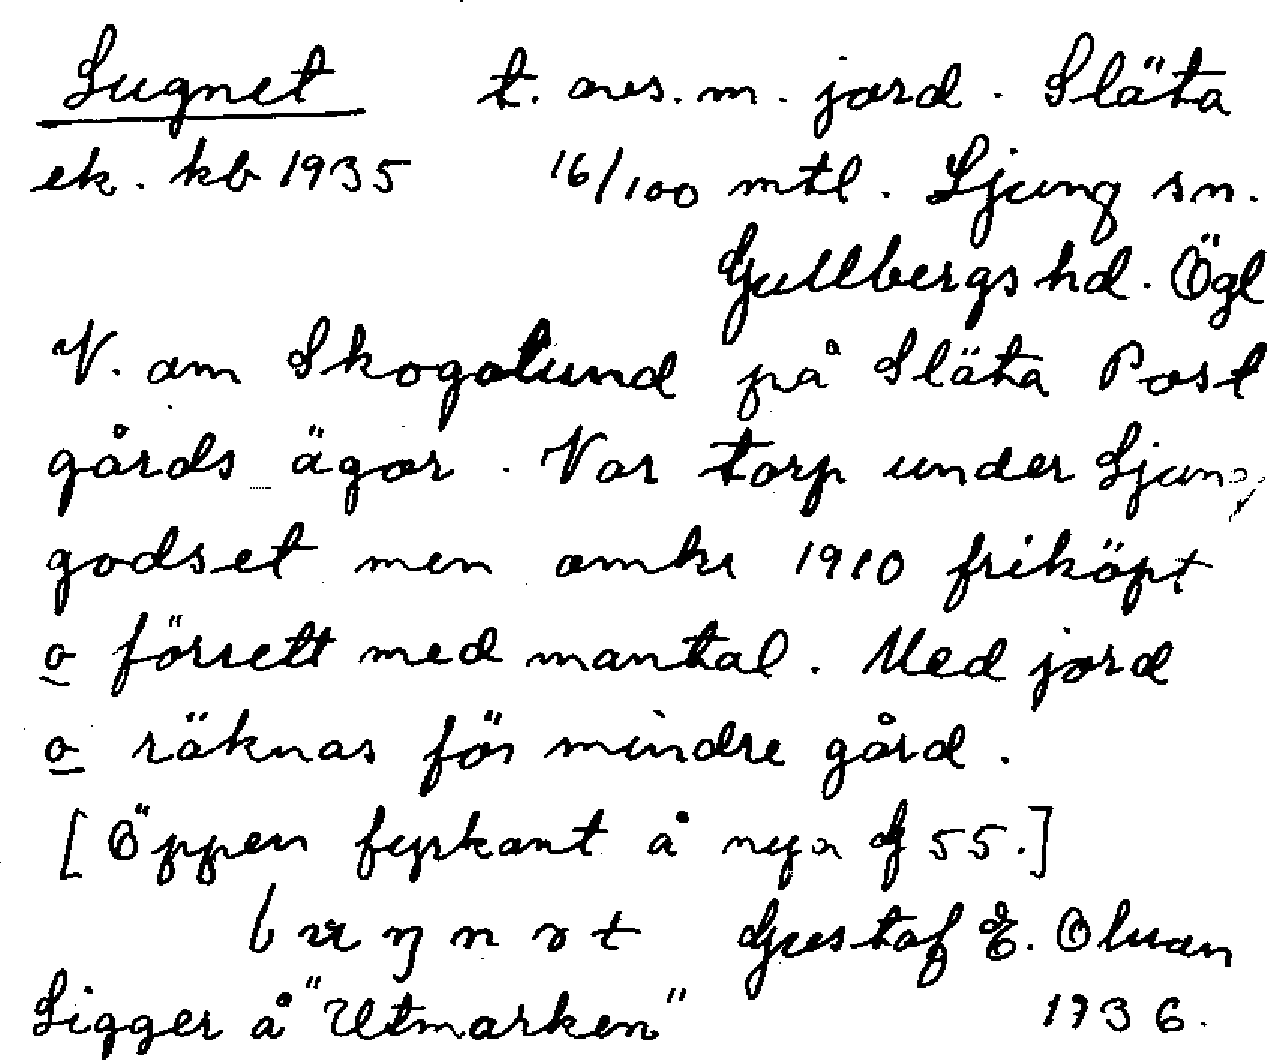 Lugnet t. avs. m. jord. Släta
ek. kb 1935 16/100 mtl. Ljung sn.
Gullbergs hd. Ögl
V. om Skogslund på Släta Post
gårds ägor. Var torp under Ljung
godset men omkr 1910 friköpt
o försett med mantal. Med jord
o räknas för mindre gård.
[Öppen fyrkant å nya G 55.]
Gustaf E. Olsson
Ligger å "Utmarken" 1936.